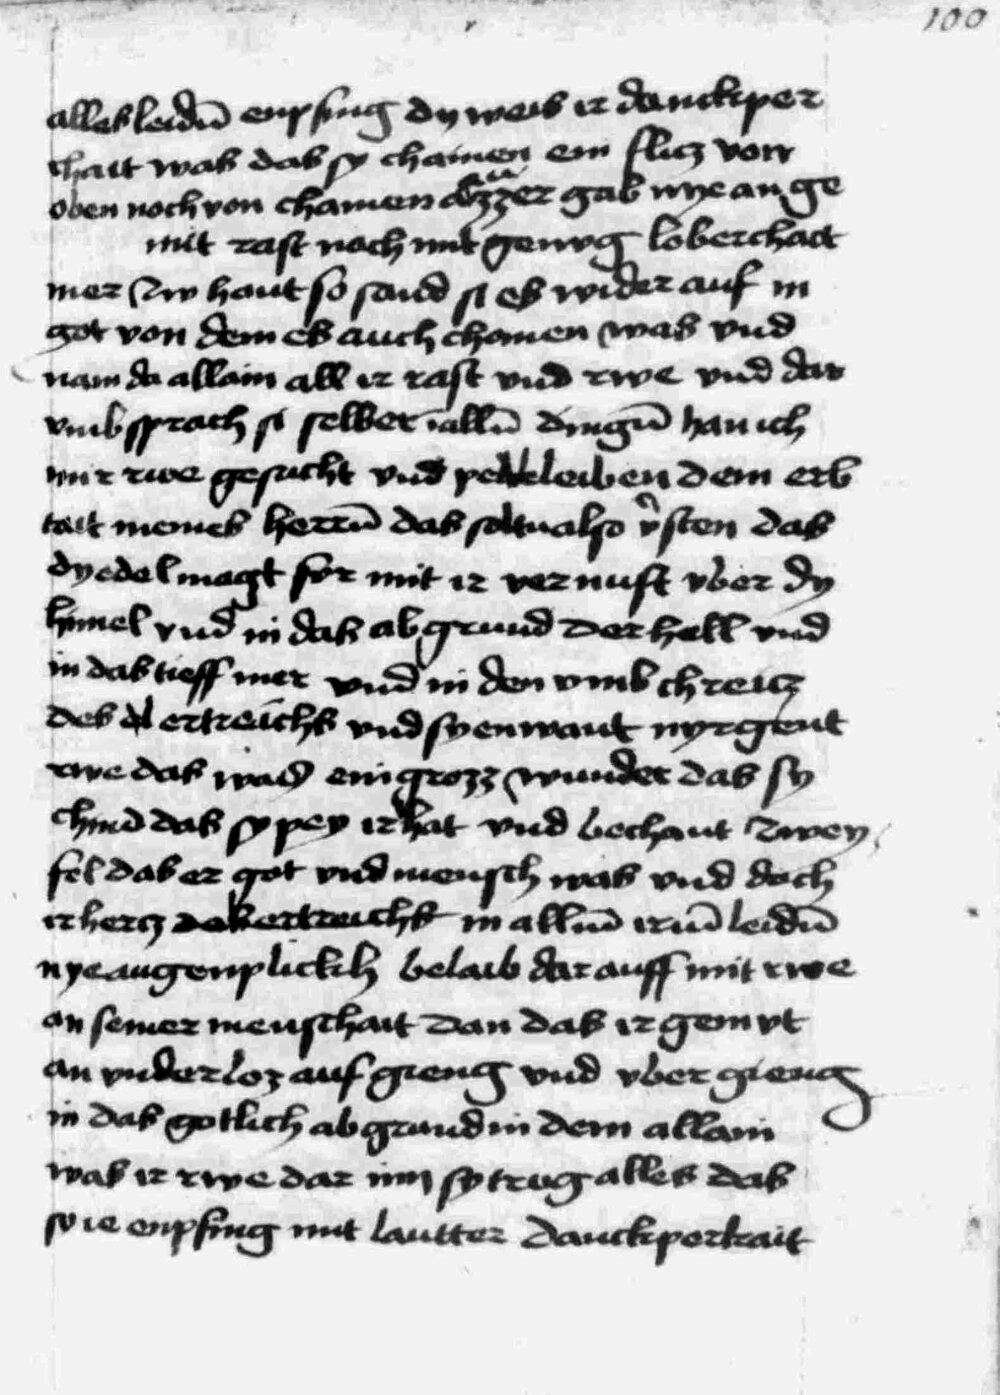 100
alles leidn̄ enpfing dy weis ir danckper
chait was das sy chamen ein flicz von
oben noch von chamen auzzer gab nye an ge
mit rast noch mit genvg loberchait
mer Zw hant so sand si es wider auf in
got von dem es auch chomen was vnd
nam da allain all ir rast vnd rwe vnd dar
vmb sprach si selber in alln̄ dingn̄ han ich
mir rwe gesucht vnd peleiben dem erb
tail meines herrn̄ das soltu also v̊sten das
dy edel magt for mit ir vernuft vber dy
himel vnd in das abgrund der hell vnd
in das tieff mer vnd in den vmbchreicz
des ertreichs vnd sy enwant nyrgent
rwe das was ein grozz wunder das sy
chind das sy pey ir hat vnd bechant Zwey
fel das er got vnd mensch was vnd doch
ir hercz in alln̄ irn̄ leidn̄
nye augenplickch belaib dar auff mit rwe
an seiner menschait dan das ir gemvt
an vnderloz auf gieng vnd vber gieng
in das gotlich abgrund in dem allain
was ir rwe dar inn sy trug alles das
sy ie enpfing mit lautter danckperkait